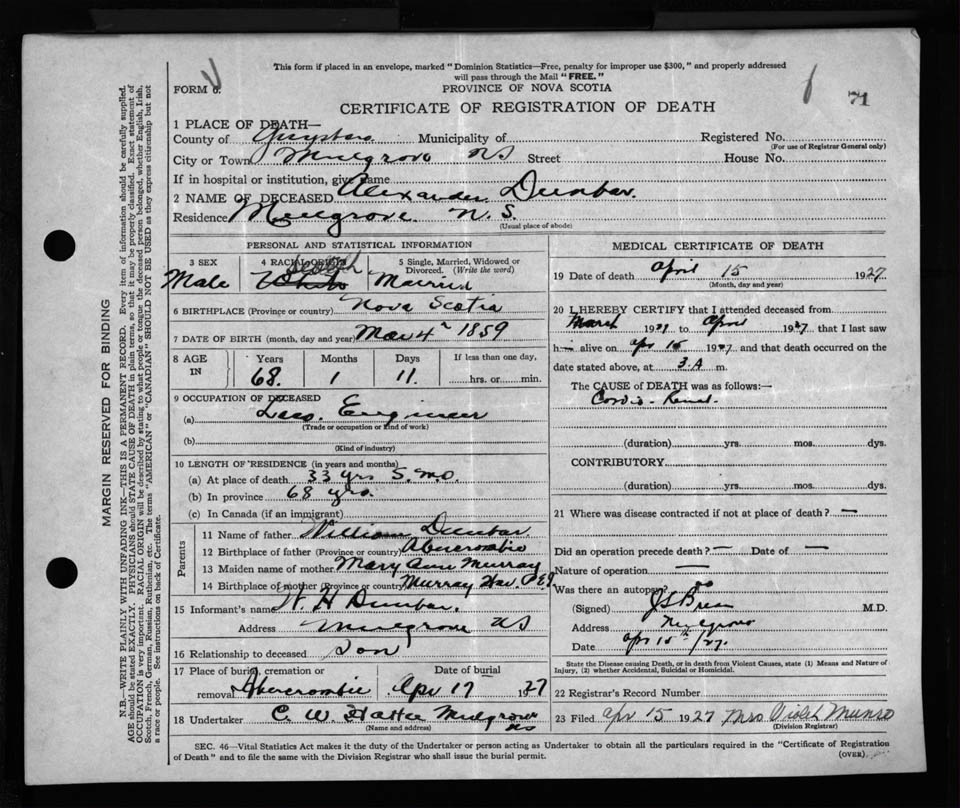 This form if placed in an envelope, marked "Dominion Statistics—Free, penalty for improper use $300," and properly addressed
will pass through the Mail "FREE."
FORM 6.
PROVINCE OF NOVA SCOTIA
71
CERTIFICATE OF REGISTRATION OF DEATH
1 PLACE OF DEATH—
County of Guysboro Municipality of Registered No.
(For use of Registrar General only)
City or Town Mulgrave NS Street House No.
If in hospital or institution, give name
2 NAME OF DECEASED Alexander Dunbar.
Residence Mulgrave N.S.
(Usual place of abode)
PERSONAL AND STATISTICAL INFORMATION
3 SEX 4 RACIAL ORIGIN 5 Single, Married, Widowed or Divorced. (Write the word)
Male Scotch White Married
6 BIRTHPLACE (Province or country) Nova Scotia
7 DATE OF BIRTH (month, day and year) Mar 4 1859
8 AGE IN Years Months Days If less than one day,
68. 1 11. hrs. or min.
9 OCCUPATION OF DECEASED
(a) Loco. Engineer
(Trade or occupation or kind of work)
(b)
(Kind of industry)
10 LENGTH OF RESIDENCE (in years and months)
(a) At place of death 33 yrs 5. mo.
(b) In province 68 yrs.
(c) In Canada (if an immigrant)
Parents
11 Name of father William Dunbar
12 Birthplace of father (Province or country) Abercrombie
13 Maiden name of mother Mary Ann Murray
14 Birthplace of mother (Province or country) Murray Har. P.E.I.
15 Informant's name W. H Dunbar.
Address Mulgrave NS
16 Relationship to deceased Son
17 Place of burial, cremation or removal Abercrombie Date of burial Apr 17 1927
18 Undertaker C. W. Hattie Mulgrave NS
(Name and address)
MEDICAL CERTIFICATE OF DEATH
19 Date of death April 15 1927
(Month, day and year)
20 I HEREBY CERTIFY that I attended deceased from
March 1921 to April 1927 that I last saw
him alive on Apr 15 1927 and that death occurred on the
date stated above, at 3.A m.
The CAUSE of DEATH was as follows:—
Cardio-Renal.
(duration) yrs. mos. dys.
CONTRIBUTORY
(duration) yrs. mos. dys.
21 Where was disease contracted if not at place of death? —
Did an operation precede death? — Date of —
Nature of operation —
Was there an autopsy? no
(Signed) M.D.
Address Mulgrave
Date Apr 15th/27.
State the Disease causing Death, or in death from Violent Causes, state (1) Means and Nature of
Injury, (2) whether Accidental, Suicidal or Homicidal.
22 Registrar's Record Number
23 Filed Apr 15 1927 Mrs Violet Munro
(Division Registrar)
SEC. 46—Vital Statistics Act makes it the duty of the Undertaker or person acting as Undertaker to obtain all the particulars required in the "Certificate of Registration
of Death" and to file the same with the Division Registrar who shall issue the burial permit.
(OVER)
MARGIN RESERVED FOR BINDING
N.B.—WRITE PLAINLY WITH UNFADING INK—THIS IS A PERMANENT RECORD. Every item of information should be carefully supplied.
AGE should be stated EXACTLY. PHYSICIANS should STATE CAUSE OF DEATH in plain terms, so that it may be properly classified. Exact statement of
OCCUPATION is very important. RACIAL ORIGIN will be described by stating to what people or tongue the deceased person belonged, whether English, Irish,
Scotch, French, German, Russian, Ruthenian, etc. The terms "AMERICAN" or "CANADIAN" SHOULD NOT BE USED as they express citizenship but not
a race or people. See instructions on back of Certificate.